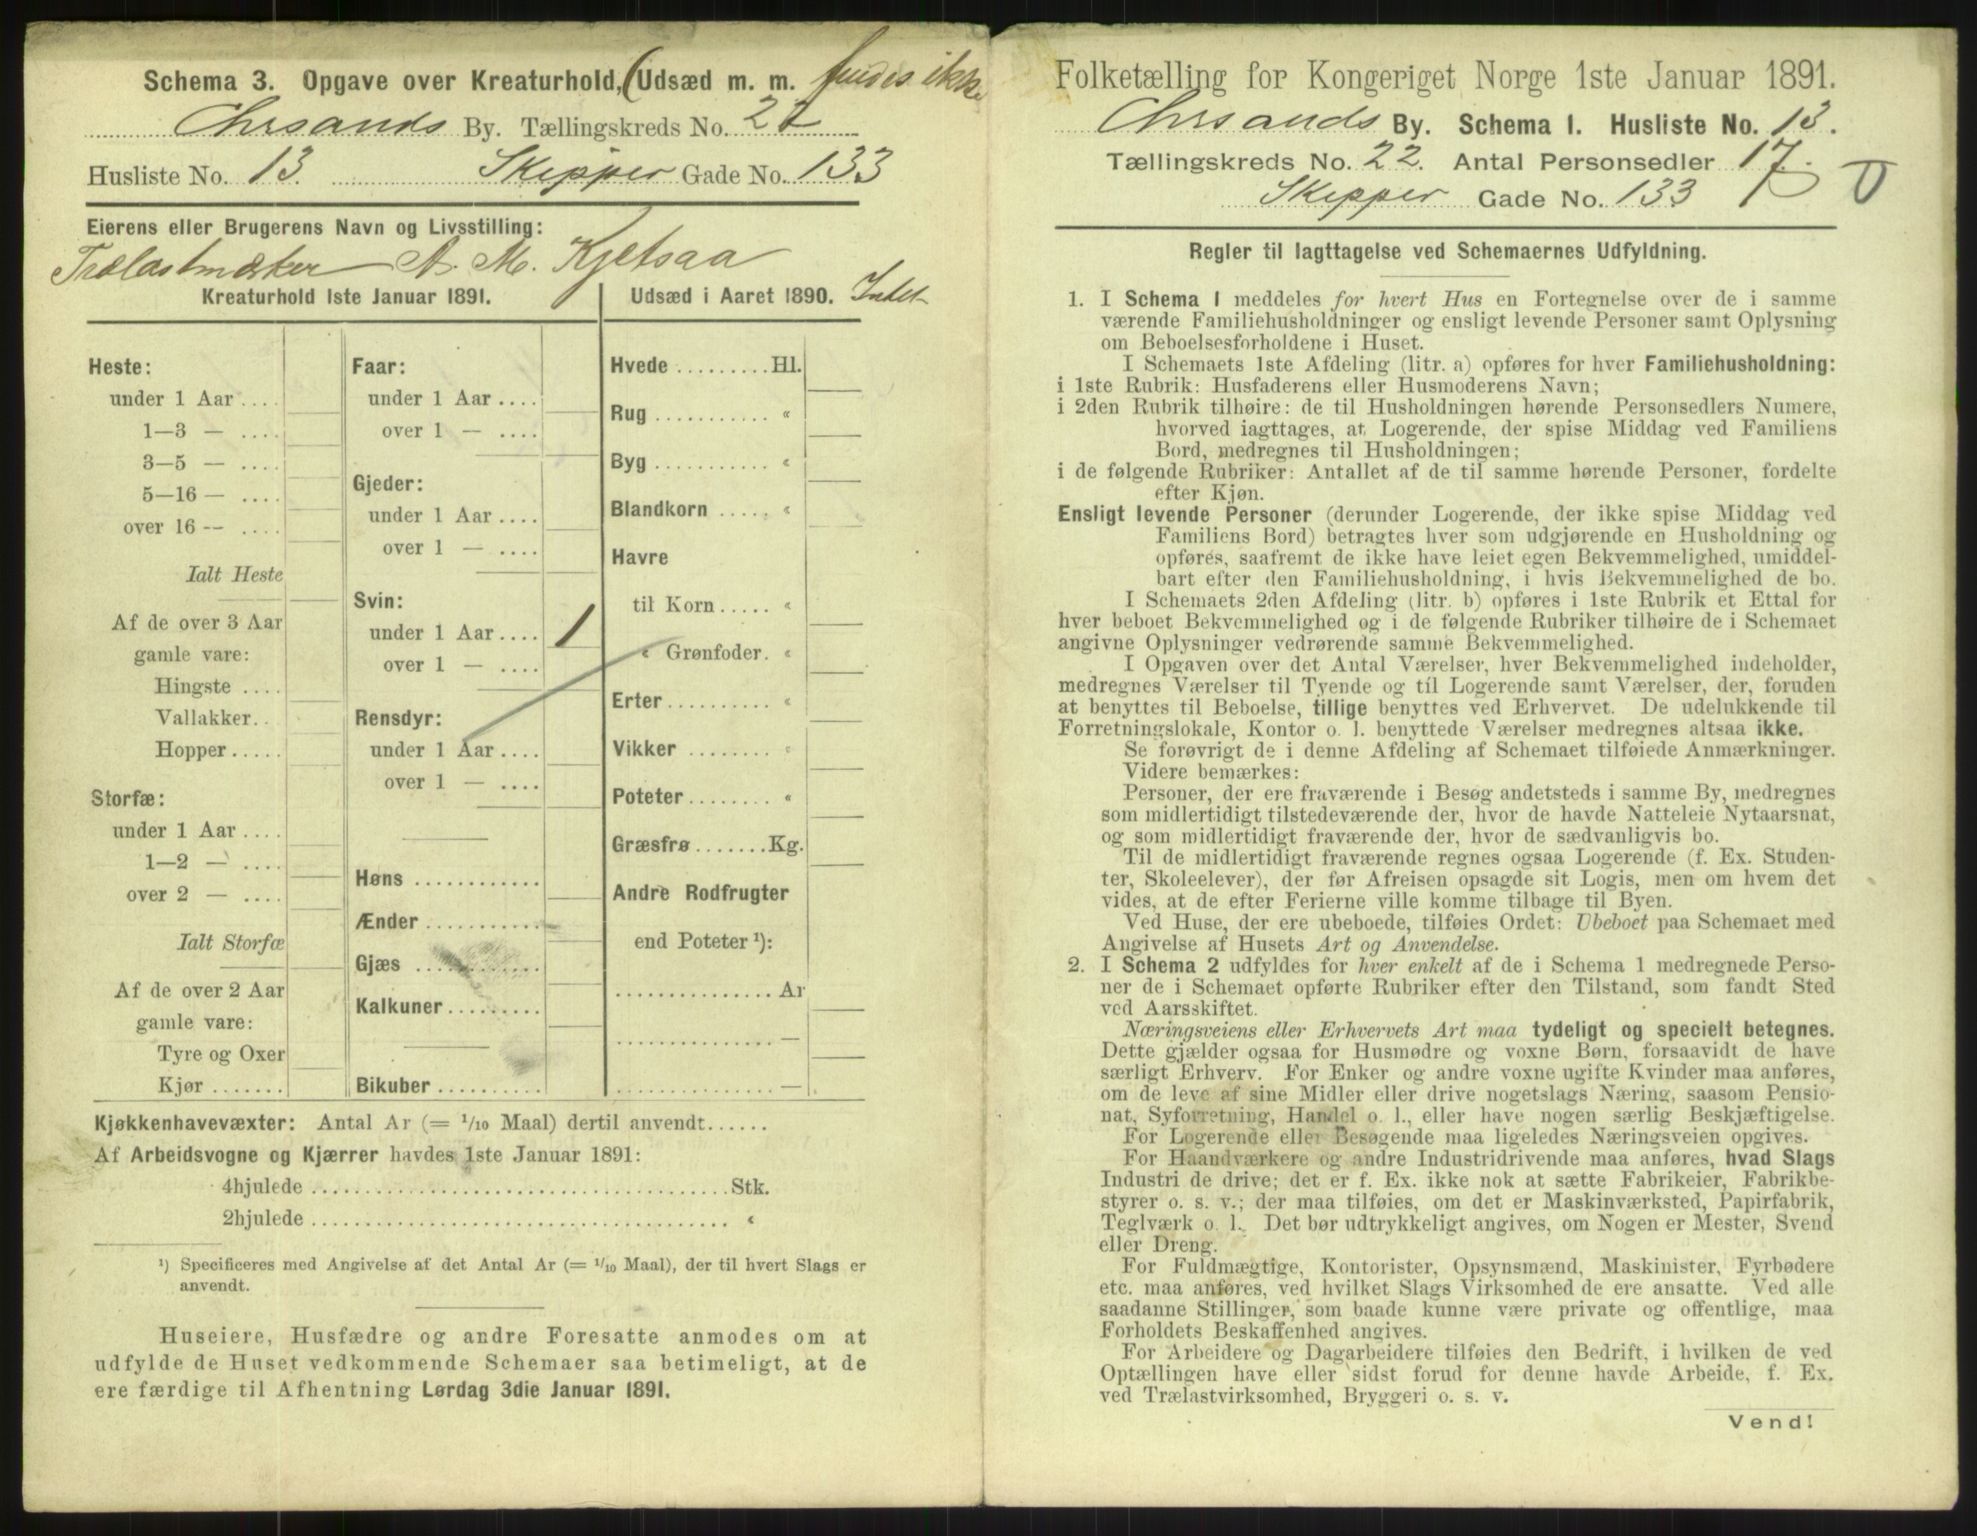 Schema 3. Opgave over Kreaturhold, (Udsæd m. m. findes ikke
Chrsands By. Tællingskreds No. 22
Husliste No. 13. Skipper Gade No. 133
Eierens eller Brugerens Navn og Livsstilling:
Trælastmæker A. M. Kjetsaa
Kreaturhold 1ste Januar 1891.
Heste:
under 1 Aar ....
1—3 — ....
3—5 — ....
5—16 — ....
over 16 -- ....
Ialt Heste
Af de over 3 Aar
gamle vare:
Hingste ....
Vallakker..
Hopper.....
Storfæ:
under 1 Aar ....
1—2 — ....
over 2 — ....
Ialt Storfæ
Af de over 2 Aar
gamle vare:
Tyre og Oxer
Kjør .......
Faar:
under 1 Aar ....
over 1 — ....
Gjeder:
under 1 Aar ....
over 1 — ....
Svin:
under 1 Aar .... 1
over 1 — ....
Rensdyr:
under 1 Aar ....
over 1 — ....
Høns ............
Ænder ...........
Gjæs ............
Kalkuner.........
Bikuber ..........
Udsæd i Aaret 1890. Intet
Hvede .........Hl.
Rug ........... «
Byg ........... «
Blandkorn ..... «
Havre
til Korn..... «
« Grønfoder. «
Erter.......... «
Vikker ........ «
Poteter........ «
Græsfrø.......Kg.
Andre Rodfrugter
end Poteter ¹):
............... Ar
............... —
............... —
Kjøkkenhavevæxter: Antal Ar (= 1/10 Maal) dertil anvendt......
Af Arbeidsvogne og Kjærrer havdes 1ste Januar 1891:
4hjulede ......................................Stk.
2hjulede ...................................... «
¹) Specificeres med Angivelse af det Antal Ar (= 1/10 Maal), der til hvert Slags er
anvendt.
Huseiere, Husfædre og andre Foresatte anmodes om at
udfylde de Huset vedkommende Schemaer saa betimeligt, at de
ere færdige til Afhentning Lørdag 3die Januar 1891.
Folketælling for Kongeriget Norge 1ste Januar 1891.
Chrsands By. Schema I. Husliste No. 13.
Tællingskreds No. 22. Antal Personsedler 17.
Skipper Gade No. 133
Regler til Iagttagelse ved Schemaernes Udfyldning.
1. I Schema 1 meddeles for hvert Hus en Fortegnelse over de i samme
værende Familiehusholdninger og ensligt levende Personer samt Oplysning
om Beboelsesforholdene i Huset.
I Schemaets 1ste Afdeling (litr. a) opføres for hver Familiehusholdning:
i 1ste Rubrik: Husfaderens eller Husmoderens Navn;
i 2den Rubrik tilhøire: de til Husholdningen hørende Personsedlers Numere,
hvorved iagttages, at Logerende, der spise Middag ved Familiens
Bord, medregnes til Husholdningen;
i de følgende Rubriker: Antallet af de til samme hørende Personer, fordelte
efter Kjøn.
Ensligt levende Personer (derunder Logerende, der ikke spise Middag ved
Familiens Bord) betragtes hver som udgjørende en Husholdning og
opføres, saafremt de ikke have leiet egen Bekvemmelighed, umiddel-
bart efter den Familiehusholdning, i hvis Bekvemmelighed de bo.
I Schemaets 2den Afdeling (litr. b) opføres i 1ste Rubrik et Ettal for
hver beboet Bekvemmelighed og i de følgende Rubriker tilhøire de i Schemaet
angivne Oplysninger vedrørende samme Bekvemmelighed.
I Opgaven over det Antal Værelser, hver Bekvemmelighed indeholder,
medregnes Værelser til Tyende og til Logerende samt Værelser, der, foruden
at benyttes til Beboelse, tillige benyttes ved Erhvervet. De udelukkende til
Forretningslokale, Kontor o. l. benyttede Værelser medregnes altsaa ikke.
Se forøvrigt de i denne Afdeling af Schemaet tilføiede Anmærkninger.
Videre bemærkes:
Personer, der ere fraværende i Besøg andetsteds i samme By, medregnes
som midlertidigt tilstedeværende der, hvor de havde Natteleie Nytaarsnat,
og som midlertidigt fraværende der, hvor de sædvanligvis bo.
Til de midlertidigt fraværende regnes ogsaa Logerende (f. Ex. Studen-
ter, Skoleelever), der før Afreisen opsagde sit Logis, men om hvem det
vides, at de efter Ferierne ville komme tilbage til Byen.
Ved Huse, der ere ubeboede, tilføies Ordet: Ubeboet paa Schemaet med
Angivelse af Husets Art og Anvendelse.
2. I Schema 2 udfyldes for hver enkelt af de i Schema 1 medregnede Perso-
ner de i Schemaet opførte Rubriker efter den Tilstand, som fandt Sted
ved Aarsskiftet.
Næringsveiens eller Erhvervets Art maa tydeligt og specielt betegnes.
Dette gjælder ogsaa for Husmødre og voxne Børn, forsaavidt de have
særligt Erhverv. For Enker og andre voxne ugifte Kvinder maa anføres,
om de leve af sine Midler eller drive nogetslags Næring, saasom Pensio-
nat, Syforretning, Handel o. l., eller have nogen særlig Beskjæftigelse.
For Logerende eller Besøgende maa ligeledes Næringsveien opgives.
For Haandværkere og andre Industridrivende maa anføres, hvad Slags
Industri de drive; det er f. Ex. ikke nok at sætte Fabrikeier, Fabrikbe-
styrer o. s. v.; der maa tilføies, om det er Maskinværksted, Papirfabrik,
Teglværk o. l. Det bør udtrykkeligt angives, om Nogen er Mester, Svend
eller Dreng.
For Fuldmægtige, Kontorister, Opsynsmænd, Maskinister, Fyrbødere
etc. maa anføres, ved hvilket Slags Virksomhed de ere ansatte. Ved alle
saadanne Stillinger, som baade kunne være private og offentlige, maa
Forholdets Beskaffenhed angives.
For Arbeidere og Dagarbeidere tilføies den Bedrift, i hvilken de ved
Optællingen have eller sidst forud for denne havde Arbeide, f. Ex.
ved Trælastvirksomhed, Bryggeri o. s. v.
Vend!